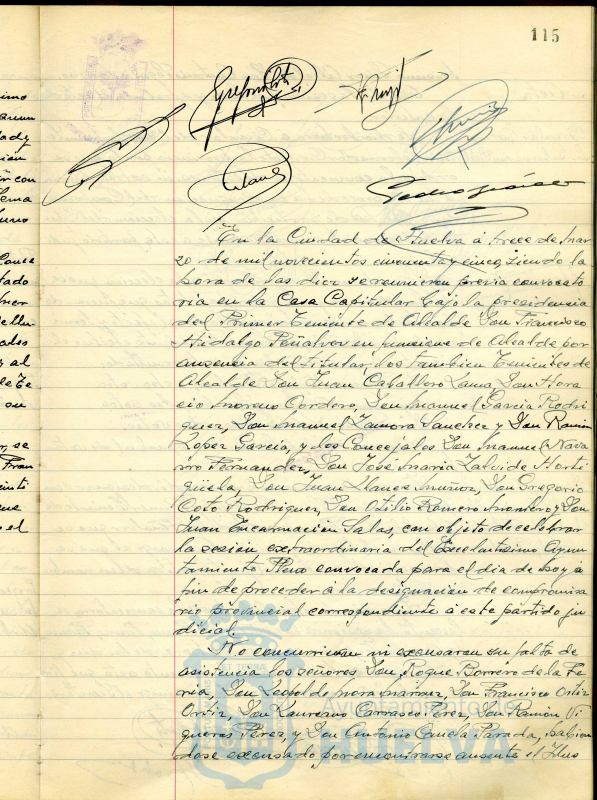 115
En la Ciudad de Huelva á trece de mar
zo de mil novecientos cincuenta y cinco, siendo la
hora de las diez se reunieron previa convocato
ria en la Casa Capitular bajo la presidencia
del Primer Teniente de Alcalde Don Francisco
Hidalgo Peñalver en funciones de Alcalde por
ausencia del titular, los tambien Tenientes de
Alcalde Don Juan Caballero Lama, Don Hora
cio Moreno Cordero, Don Manuel Garcia Rodri
guez, Don Manuel Zamora Sanchez y Don Ramon
Lopez Garcia, y los Concejales Don Manuel Nava
rro Fernandez, Don Jose Maria Zalvide Horti
güela, Don Juan Llanes Muñoz, Don Gregorio
Coto Rodriguez, Don Otilio Romero Montero y Don
Juan Encarnacion Salas, con objeto de celebrar
la sesion extraordinaria del Excelentisimo Ayun
tamiento Pleno convocada para el dia de hoy á
fin de proceder á la designación de compromisa
rio provincial correspondiente á este partido ju
dicial.
No concurrieron ni excusaron su falta de
asistencia los señores Don Roque Borrero de la Fe
ria, Don Leopoldo Mora Don Francisco Ortiz
Ortiz, Don Laureano Carrasco Perez, Don Ramon Vi
gueras Perez y Don Antonio Canela Parada, habien
dose excusado por encontrarse ausente el Ilus
Ayuntamiento de
HUELVA